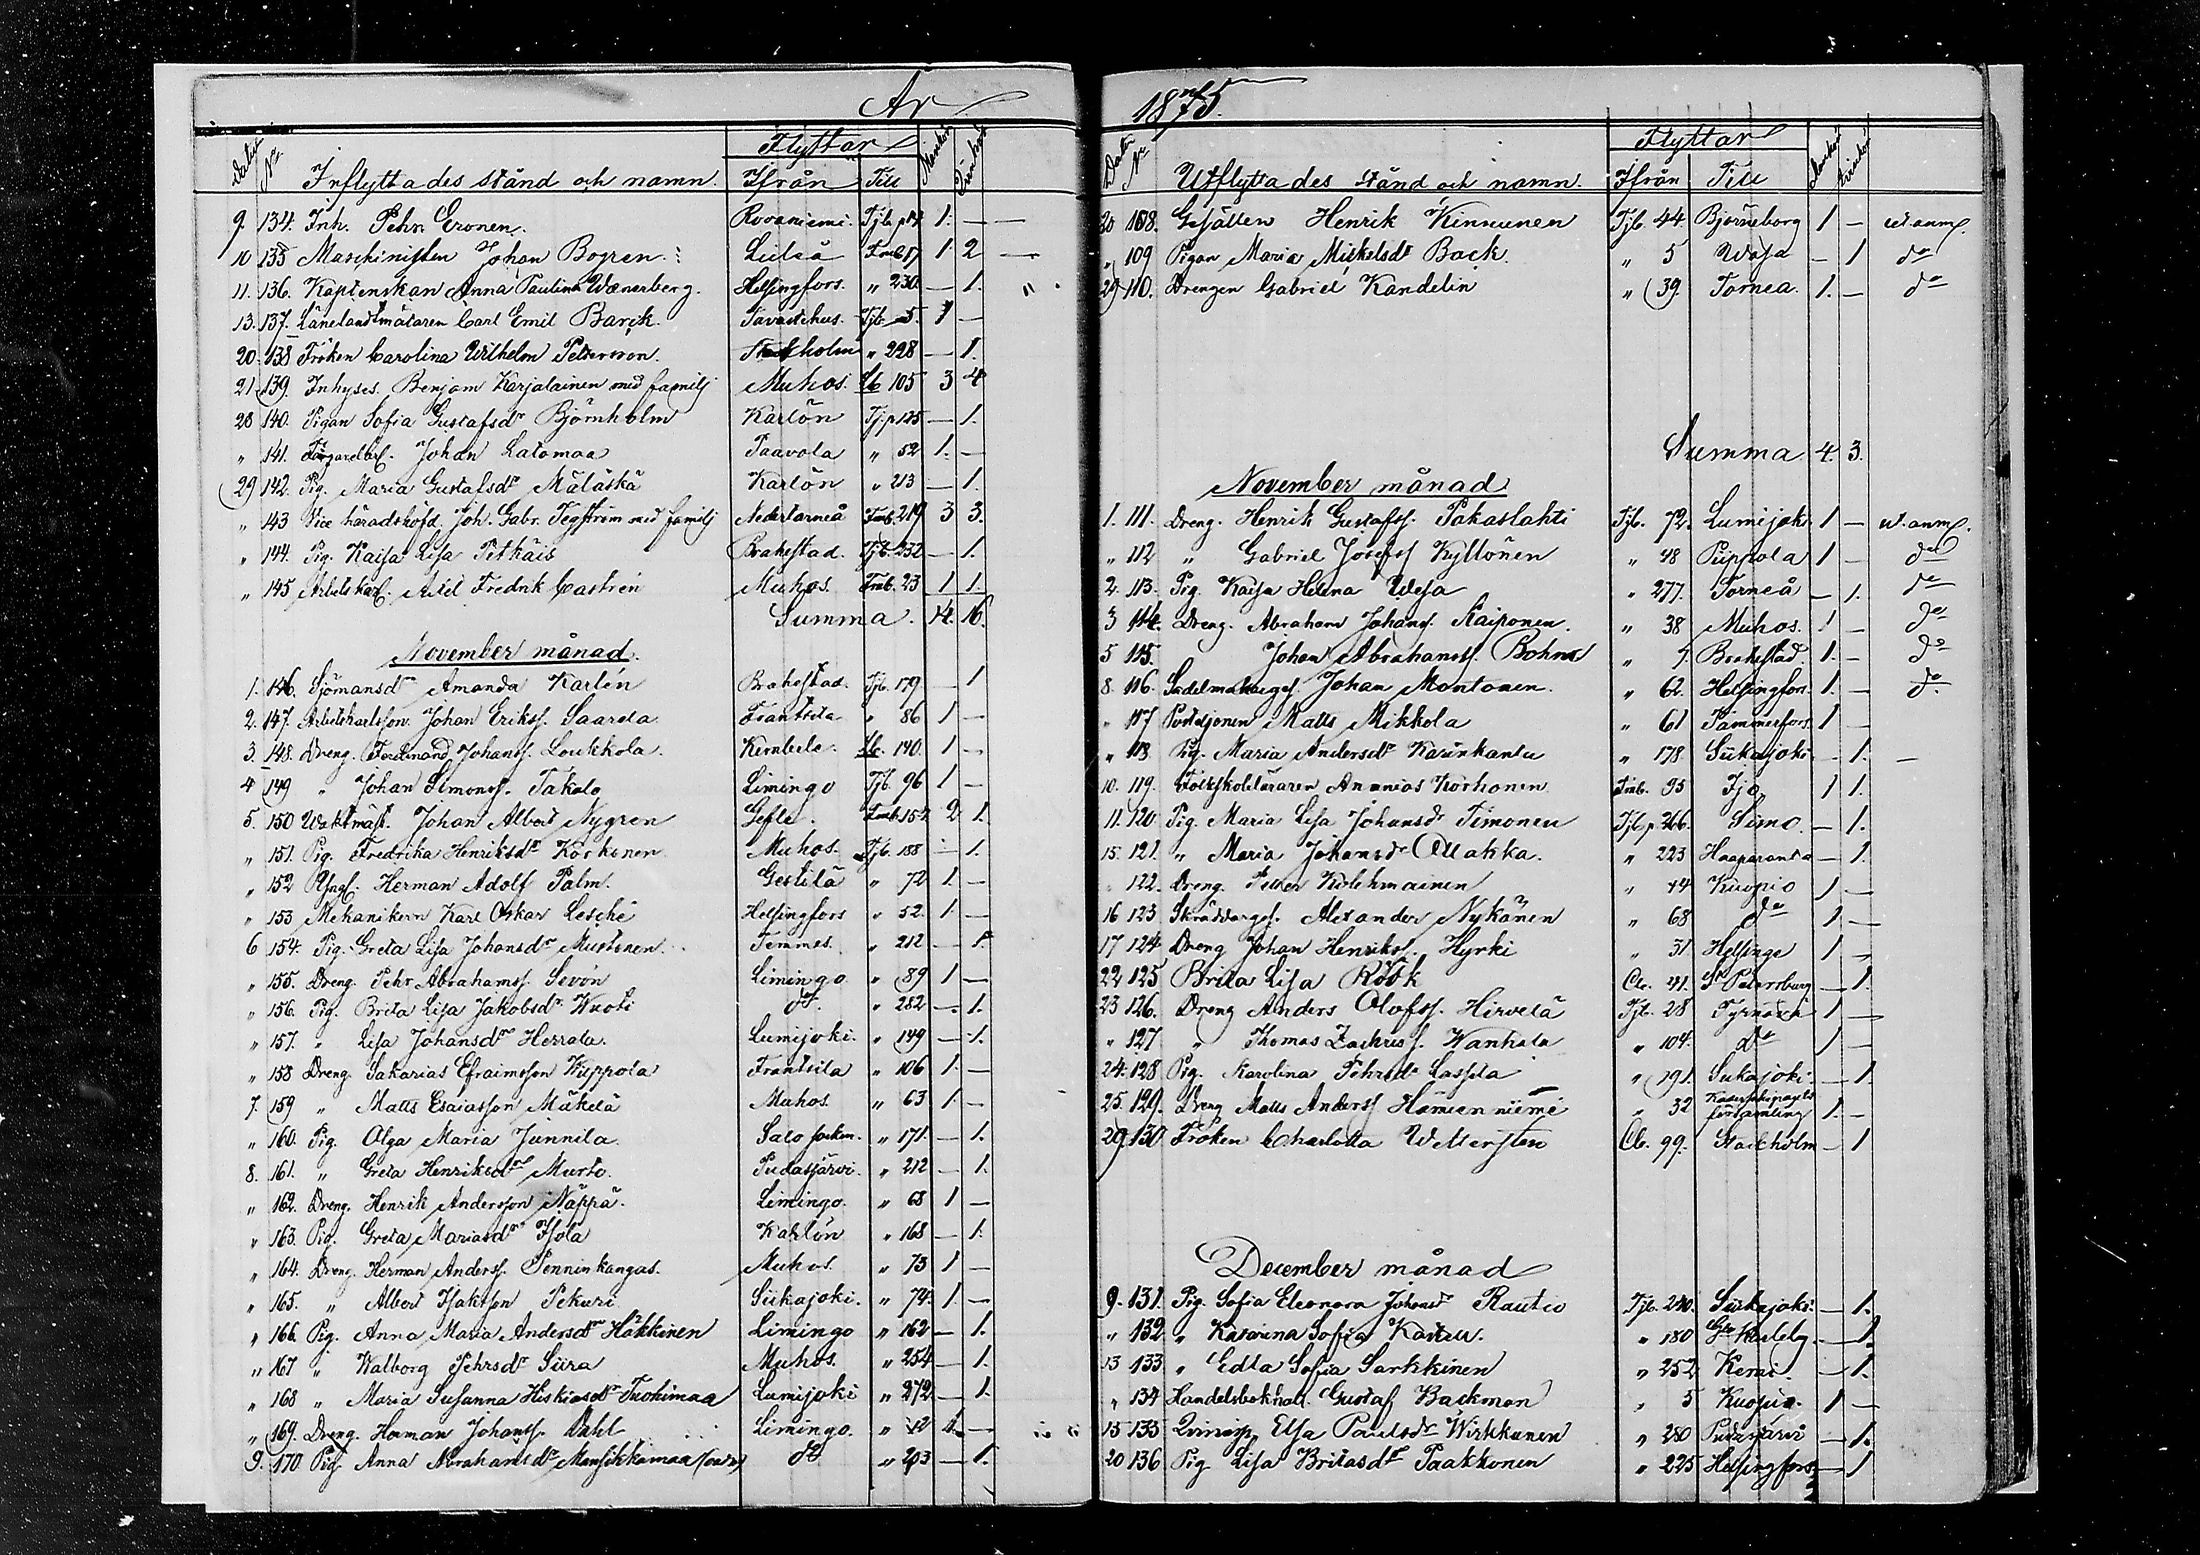 År
Datum No Inflyttades stånd och namn. Flyttar Ifrån Till Mankön Qvinkön
9. 134. Inh. Pehr Eronen. Rovaniemi. Tjb. p 14 1. —
10 135 Maschinisten Johan Bogren. Luleå Fmb 17 1 2
11. 136. Kaptenskan Anna Paulina Wænerberg. Helsingfors. " 230. — 1.
13. 137. Länelandtmätaren Carl Emil Barck. Tavastehus. Tjb. 5. 1 —
20. 138 Fröken Carolina Wilhelm Pettersson. Stockholm " 228 — 1.
21. 139. Inhyses. Benjam Karjalainen med familj Muhos. Sb 105 3 4
28 140. Pigan Sofia Gustafsdr Björnholm Karlön Tj. p 125 — 1.
" 141. Johan Latomaa Paavola " 52 1. —
29 142. Pig. Maria Gustafsdr Mäläskä Karlön " 213 — 1.
" 143 Vice häradshöfd. Joh. Gabr. Tegström med familj Nedertorneå Fmb. 219 3 3.
" 144. Pig. Kaisa Lisa Pitkäis Brahestad. Tjb. 232 — 1.
" 145 Arbetskarl. Fredrik Castrén Muhos. Fmb. 23 1 1.
Summa. 14. 16.
November månad.
1. 146. Sjömansdr Amanda Karlén Brahestad. Tjb. 179 — 1
2. 147. Arbetskarlsson. Johan Erikss. Saarela Frantsila " 86 1 —
3. 148. Dreng. Ferdinand Johanss. Loukkola. Kembele. Sb. 140. 1 —
4 149 " Johan Simonss. Takalo Limingo Tjb. 96 1 —
5. 150 Waktmäst. Johan Albert Nygren Gefle. Fmb. 154 2 1.
" 151. Pig. Fredrika Henriksdr Koskonen Muhos. Tjb. 188 — 1.
" 152 Yngl. Herman Adolf Palm. Gestilä " 72 1. —
" 153 Mekanikern Karl Oskar Lesché Helsingfors " 52. 1. —
6 154. Pig. Greta Lisa Johansdr Mustonen. Temmes. " 212 — 1.
" 155. Dreng. Pehr Abrahamss. Sevón Limingo " 89 1 —
" 156. Pig. Brita Lisa Jakobsdr Wuoti do. " 282 — 1.
" 157. " Lisa Johansdr Herrala. Lumijoki. " 149 — 1.
" 158 Dreng. Sakarias Efraimsson Wuppola Frantsila " 106 1. —
7. 159 " Matts Esaiasson Mäkelä Muhos. " 63 1. —
" 160. Pig. Olga Maria Junnila. Salo socken. " 171. — 1.
8. 161. " Greta Henriksdr Murto. Pudasjärvi. " 212 — 1.
" 162. Dreng. Henrik Andersson Näppä. Limingo. " 68 1 —
" 163. Pig. Greta Mariasdr Isola Karlön " 168 — 1.
" 164. Dreng. Herman Anderss. Penninkangas. Muhos. " 73 1 —
" 165. " Albert Isaksson Pekuri Siikajoki. " 74. 1. —
" 166. Pig. Anna Maria Andersdr Häkkinen Limingo " 162 — 1.
" 167 " Walborg Pehrsdr Siira Muhos. " 254 — 1.
" 168 " Maria Susanna Hiskiasdr Tuohimaa Lumijoki " 272 — 1.
" 169. Dreng. Herman Johanss. Dahl Limingo. " 1. —
9. 170. Pig. Anna Abrahamsdr Mansikkamaa do " 203 — 1.
1875.
Datum No Utflyttades stånd och namn. Flyttar Ifrån Till Mankön Qvinkön
20 108. Gesällen Henrik Kinnunen Tjb. 44. Björneborg 1 — ut. anm.
" 109 Pigan Maria Mickelsdr Back. " 5 Wasa — 1 do
29 110. Drengen Gabriel Kandelin " 39. Torneå. 1. — do
Summa 4. 3.
November månad
1. 111. Dreng. Henrik Gustafss. Pakaslahti Tjb. 72. Lumijoki 1 — ut. anm.
" 112 " Gabriel Josefss Kyllönen " 48 Piippola 1 — do
2. 113. Pig. Kaisa Helena Wesa " 277. Torneå — 1. do
3 114. Dreng. Abraham Johanss. Kaiponen. " 38 Muhos. 1 — do
5 115. Johan Abrahamss. Bohm " 5. Brahestad. 1. — do
8. 116. Sadelmakarges. Johan Montonen. " 62. Helsingfors. 1. — do.
" 117 Postiljonen Matts Mikkola " 61 Tammerfors. 1 —
" 118. Pig. Maria Andersdr Karinkanta " 178. Siikajoki. — 1. —
10. 119. Folkskoleläraren Ananias Korhonen Fmb. 95 Ijo 1 1.
11. 120 Pig. Maria Lisa Johansdr Timonen Tjb p. 266. Simo. — 1.
15. 121. " Maria Johansdr Ollakka. " 223 Haaparanda — 1.
122. Dreng. Petter Kolehmainen " 44 Kuopio 1 —
16 123 Skräddarges. Alexander Nykänen " 68 do 1 —
17 124 Dreng Johan Henrikss. Hyrki " 31 Helsinge 1 —
22 125 Brita Lisa Röök Clr. 41. St Petersburg — 1.
23 126. Dreng Anders Olofss. Hirvelä Tjb. 28 Tyrnävä 1 —
" 127 " Thomas Zachriss. Wanhala " 104. do 1 —
24. 128 Pig. Karolina Pehrsdr Lassila " 191. Siikajoki. — 1.
25. 129. Dreng Matts Anderss Hämeenniemi " 32 församling 1. —
29 130. Fröken Charlotta Wetterstén Clr. 99. Stockholm — 1
December månad
9. 131. Pig. Sofia Eleonora Johansdr Rautio Tjb. 240. Siikajoki. — 1.
" 132 " Katarina Sofia Kastau. " 180 Gla Karleby. — 1.
13 133. " Edla Sofia Sarkkinen " 252 Kemi. — 1.
" 134 Handelsbokhåll. Gustaf Backman " 5 Kuopio. 1 —
15 135 Elsa Paulsdr Wirkkunen " 280 Pudasjärvi — 1.
20 136 Pig Lisa Britasdr Paakkonen " 225 Helsingfors — 1